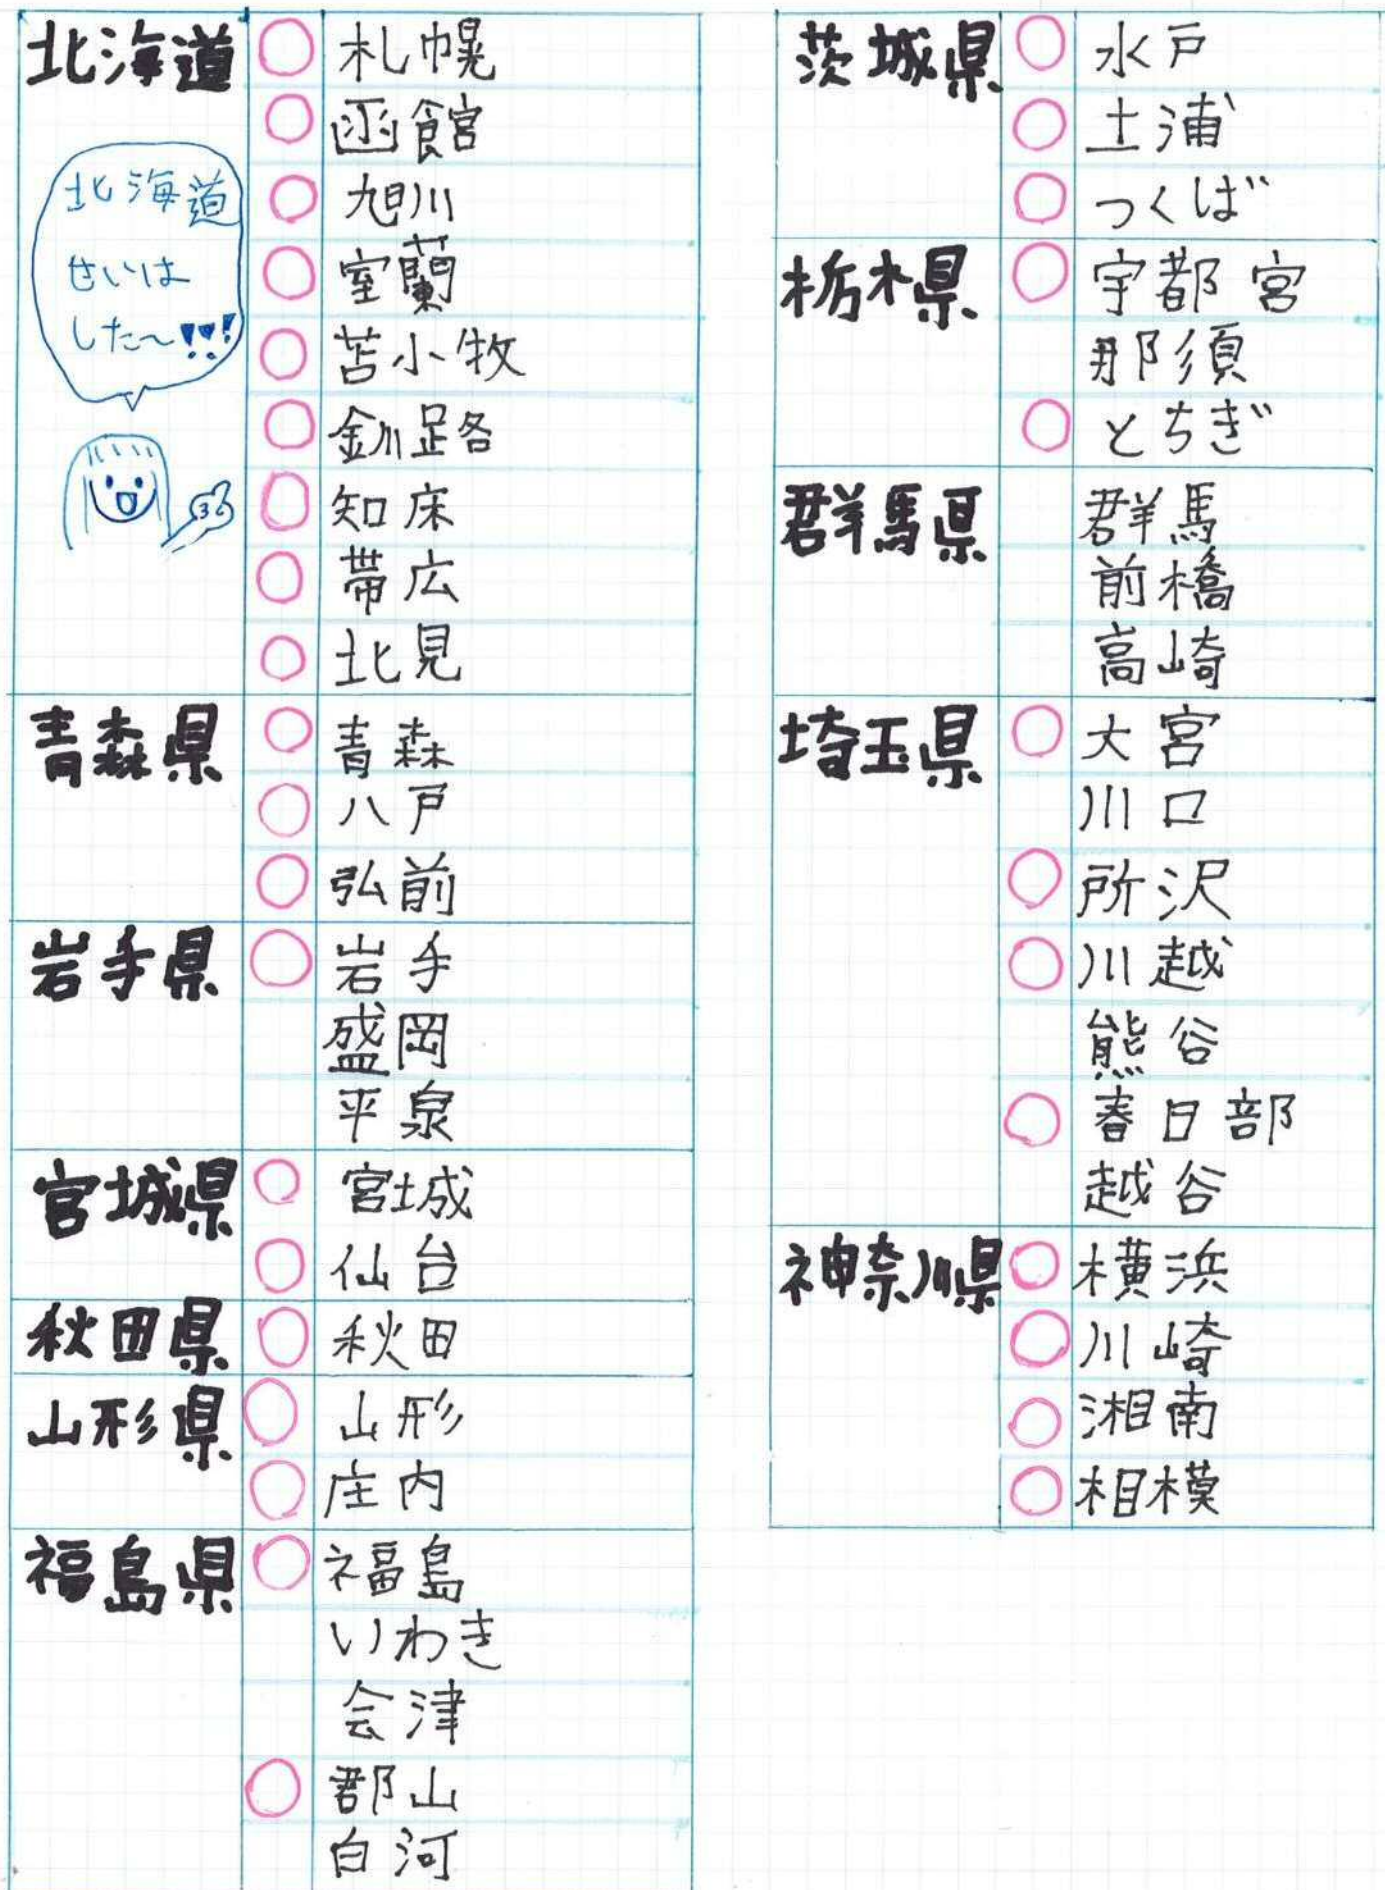 北海道
札幌
函館
旭川
室蘭
苫小牧
釧路
知床
帯広
北見
北海道
せいは
した〜!!!
青森県
青森
八戸
弘前
岩手県
岩手
盛岡
平泉
宮城県
宮城
仙台
秋田県
秋田
山形県
山形
庄内
福島県
福島
いわき
会津
郡山
白河
茨城県
水戸
土浦
つくば
栃木県
宇都宮
那須
とちぎ
群馬県
群馬
前橋
高崎
埼玉県
大宮
川口
所沢
川越
熊谷
春日部
越谷
神奈川県
横浜
川崎
湘南
相模